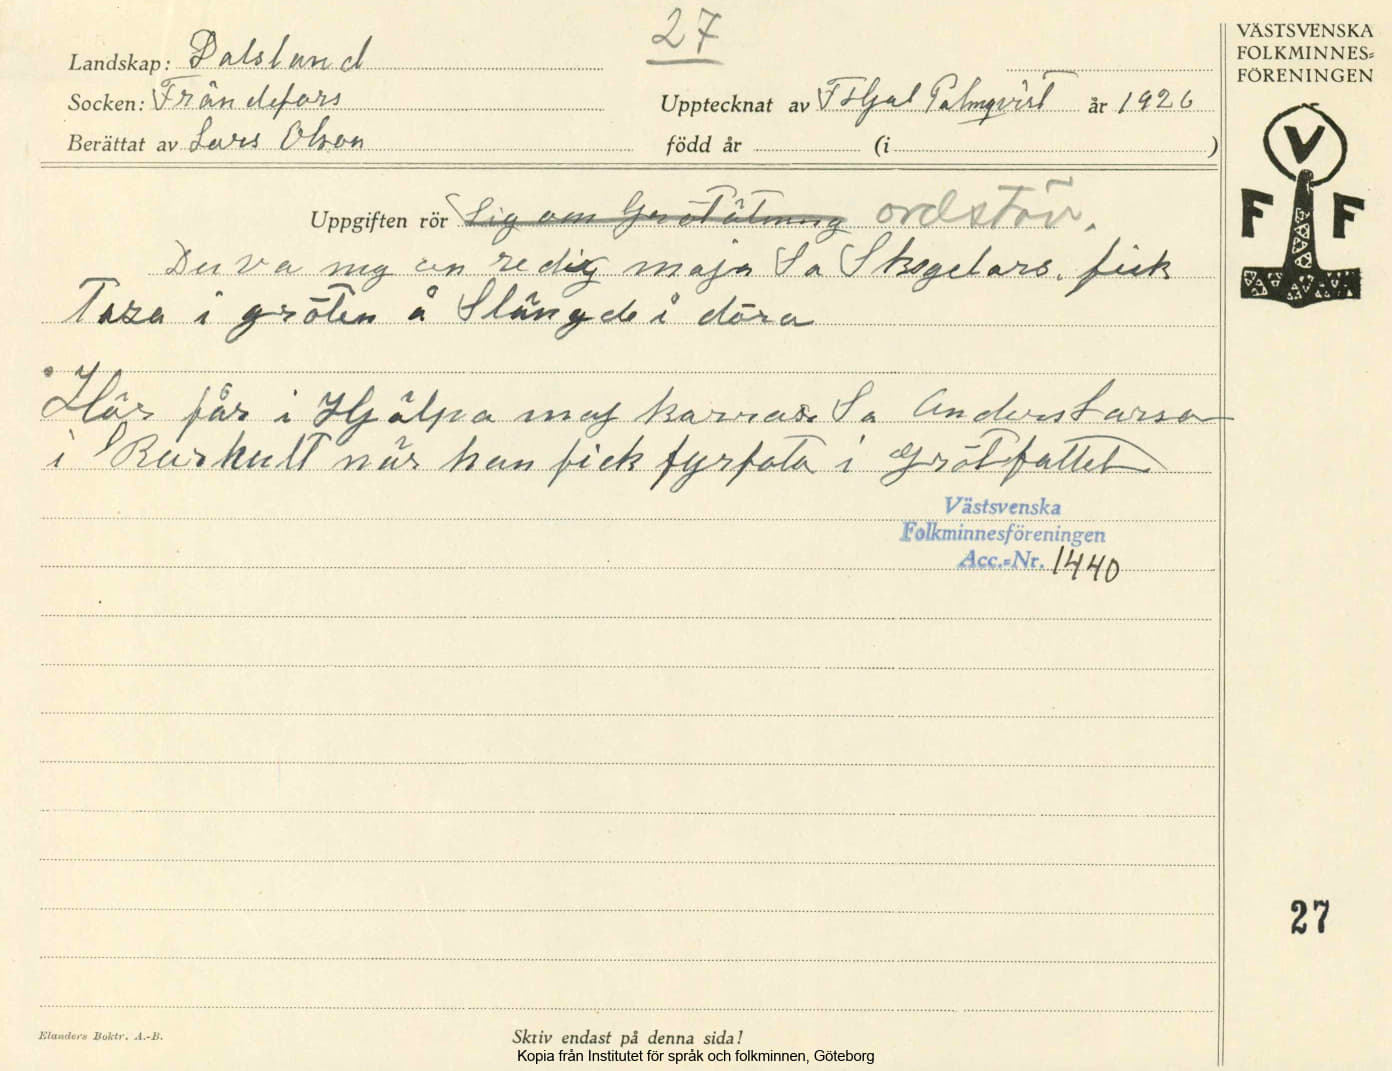 27
VÄSTSVENSKA
FOLKMINNES=
FÖRENINGEN
Landskap: Dalsland
Socken: Frändefors
Upptecknat av Hjal Palmqvist år 1926
Berättat av Lars Olson
född år (i )
V
F F
Uppgiften rör Sig om Grötätning ordstäv.
De va mg en redig maja Sa Skogelars. fick
Taza i gröten å Slängde i döra
Här får i Hjälpa maj karrar Sa Anders Larson
i Buskult när han fick fyrfota i grötfattet
Västsvenska
Folkminnesföreningen
Acc.=Nr. 1440
27
Elanders Boktr. A.-B.
Skriv endast på denna sida!
Kopia från Institutet för språk och folkminnen, Göteborg